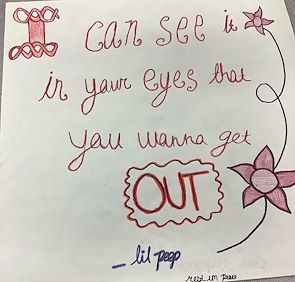 I can see it
in your eyes that
you wanna get
OUT
_ lil peep
rest in peace